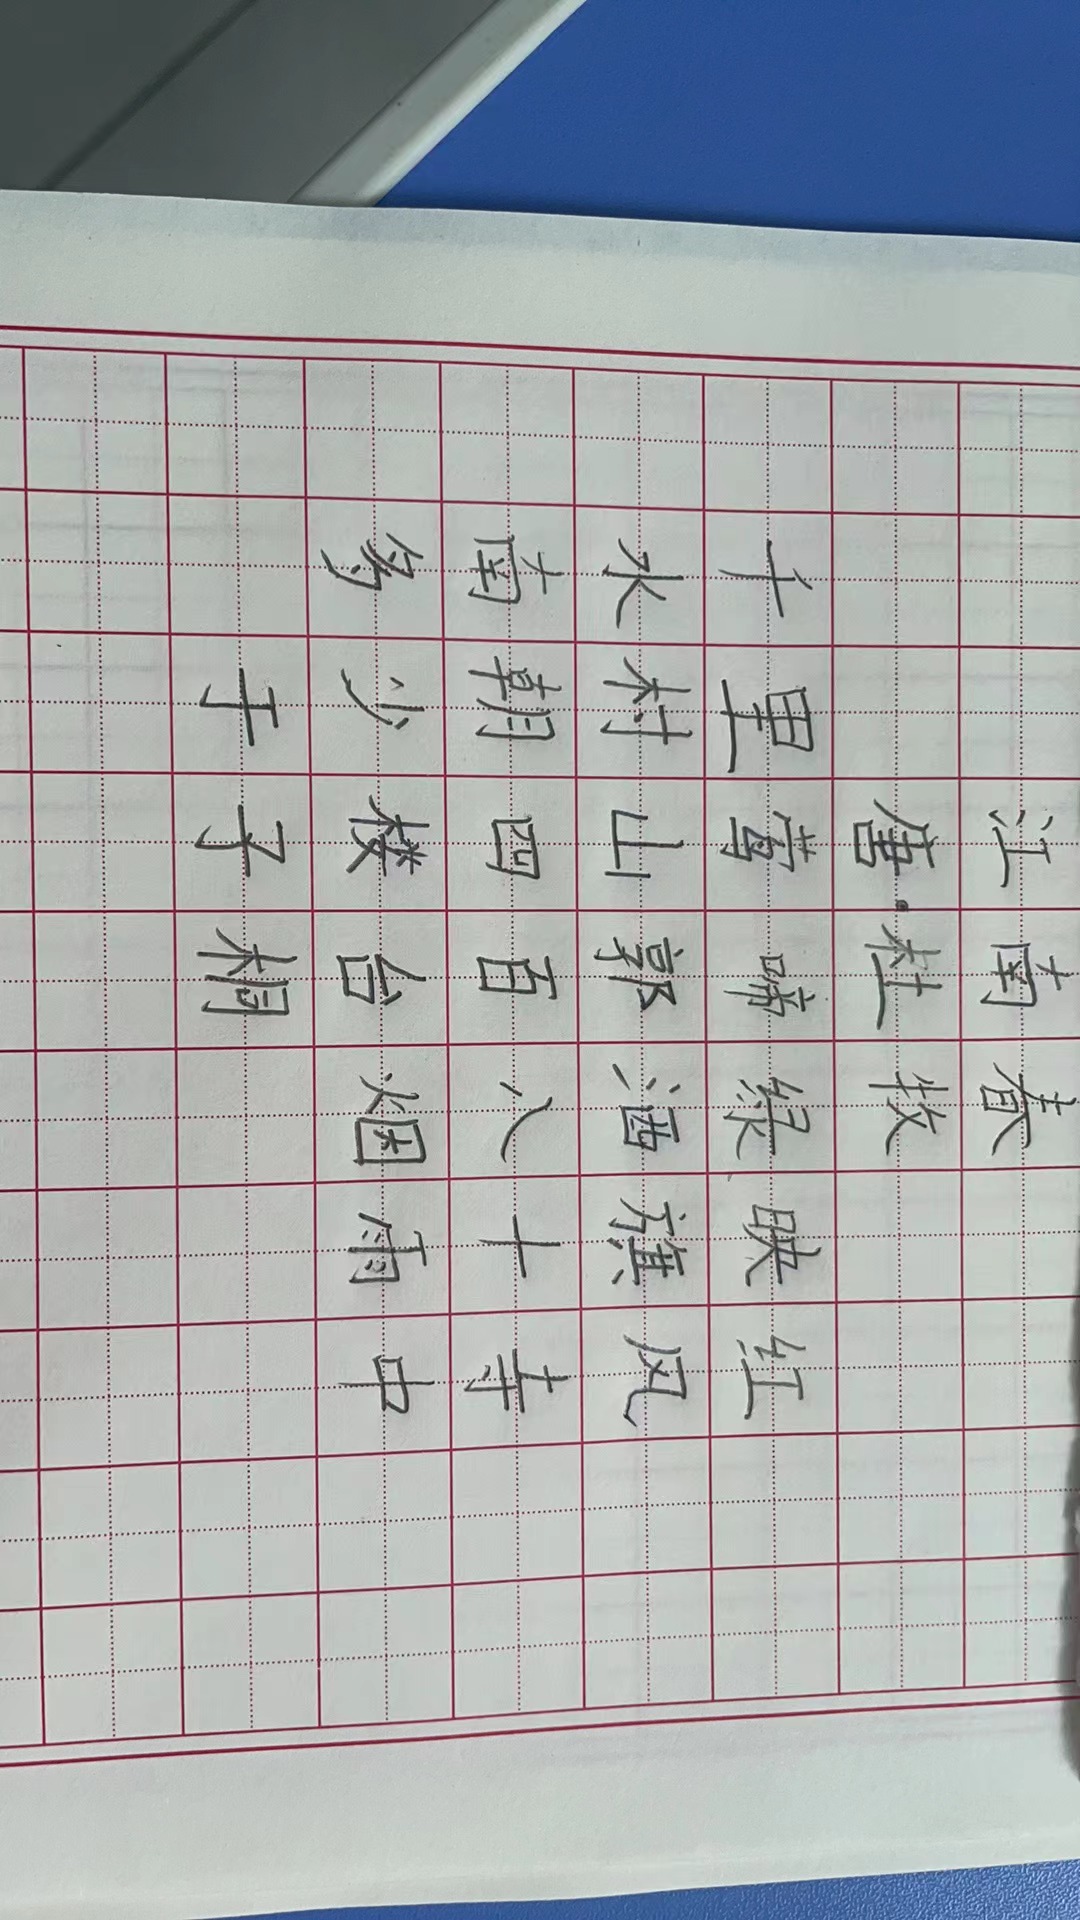 江南春
唐·杜牧
千里莺啼绿映红
水村山郭酒旗风
南朝四百八十寺
多少楼台烟雨中
于子桐